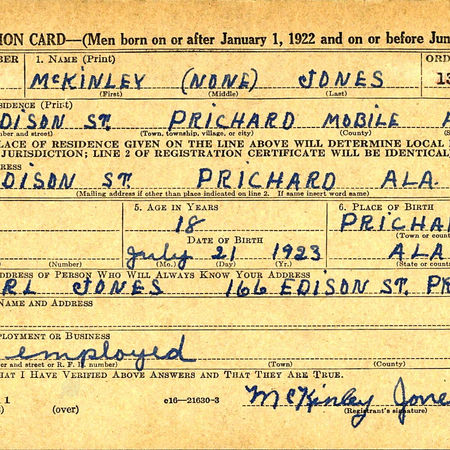 ION CARD—(Men born on or after January 1, 1922 and on or before Jun
MBER 1. NAME (Print) ORD
McKINLEY (NONE) JONES 13
(First) (Middle) (Last)
ESIDENCE (Print)
DISON ST. PRICHARD MOBILE A
ber and street) (Town, township, village, or city) (County) (S
LACE OF RESIDENCE GIVEN ON THE LINE ABOVE WILL DETERMINE LOCAL
JURISDICTION; LINE 2 OF REGISTRATION CERTIFICATE WILL BE IDENTICAL
RESS
DISON ST. PRICHARD ALA.
(Mailing address if other than place indicated on line 2. If same insert word same)
5. AGE IN YEARS 6. PLACE OF BIRTH
18 PRICHAR
DATE OF BIRTH (Town or count
July 21 1923 ALA
(Number) (Mo.) (Day) (Yr.) (State or count
DDRESS OF PERSON WHO WILL ALWAYS KNOW YOUR ADDRESS
RL JONES 166 EDISON ST. PR
NAME AND ADDRESS
PLOYMENT OR BUSINESS
employed
er and street or R. F. D. number) (Town) (County)
HAT I HAVE VERIFIED ABOVE ANSWERS AND THAT THEY ARE TRUE.
1 (over) c16—21630-3 McKinley Jone
(Registrant's signature)